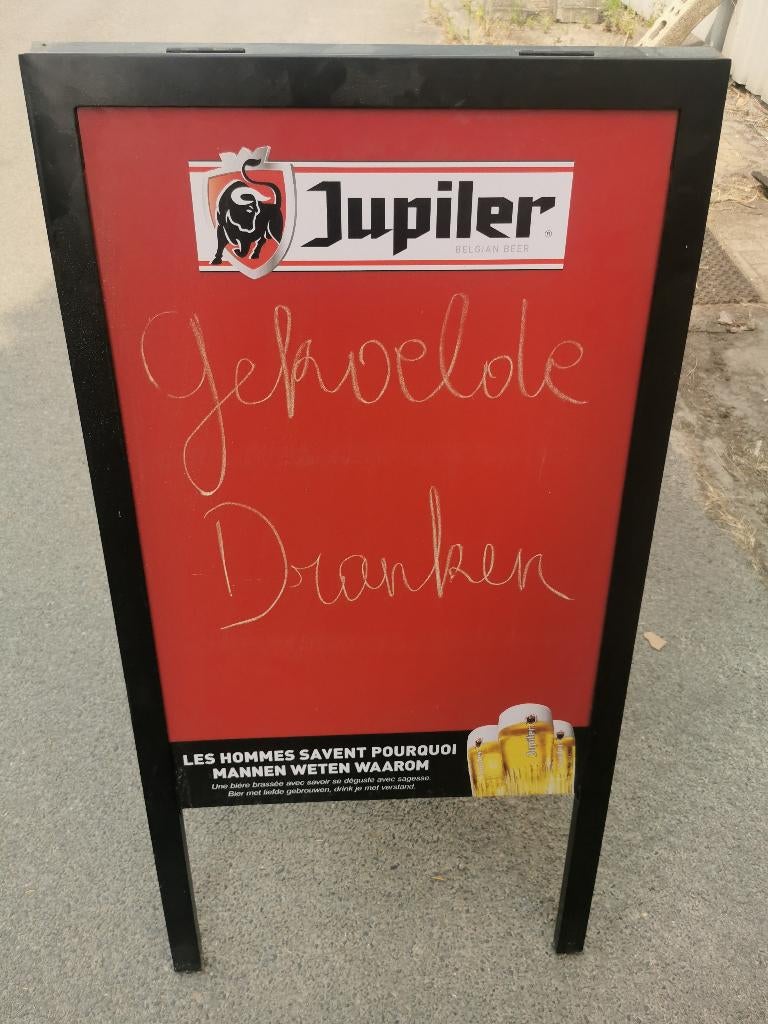 Jupiler
BELGIAN BEER
Gekoelde
Dranken
LES HOMMES SAVENT POURQUOI
MANNEN WETEN WAAROM
Une bière brassée avec savoir se déguste avec sagesse.
Bier met liefde gebrouwen, drink je met verstand.
Jupiler